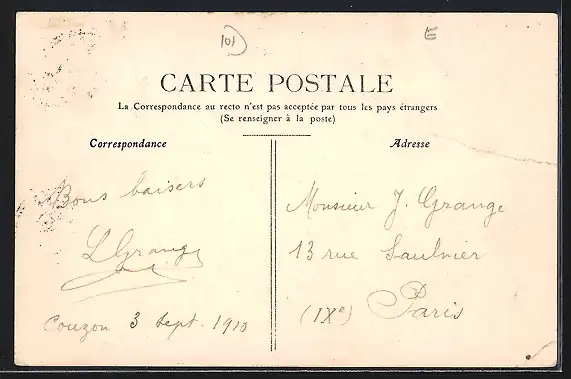 101 E
CARTE POSTALE
La Correspondance au recto n'est pas acceptée par tous les pays étrangers
(Se renseigner à la poste)
Correspondance
Bons baisers
L Grange
Couzon 3 Sept. 1910
Adresse
Monsieur J. Grange
13 rue Saulnier
(IXe) Paris